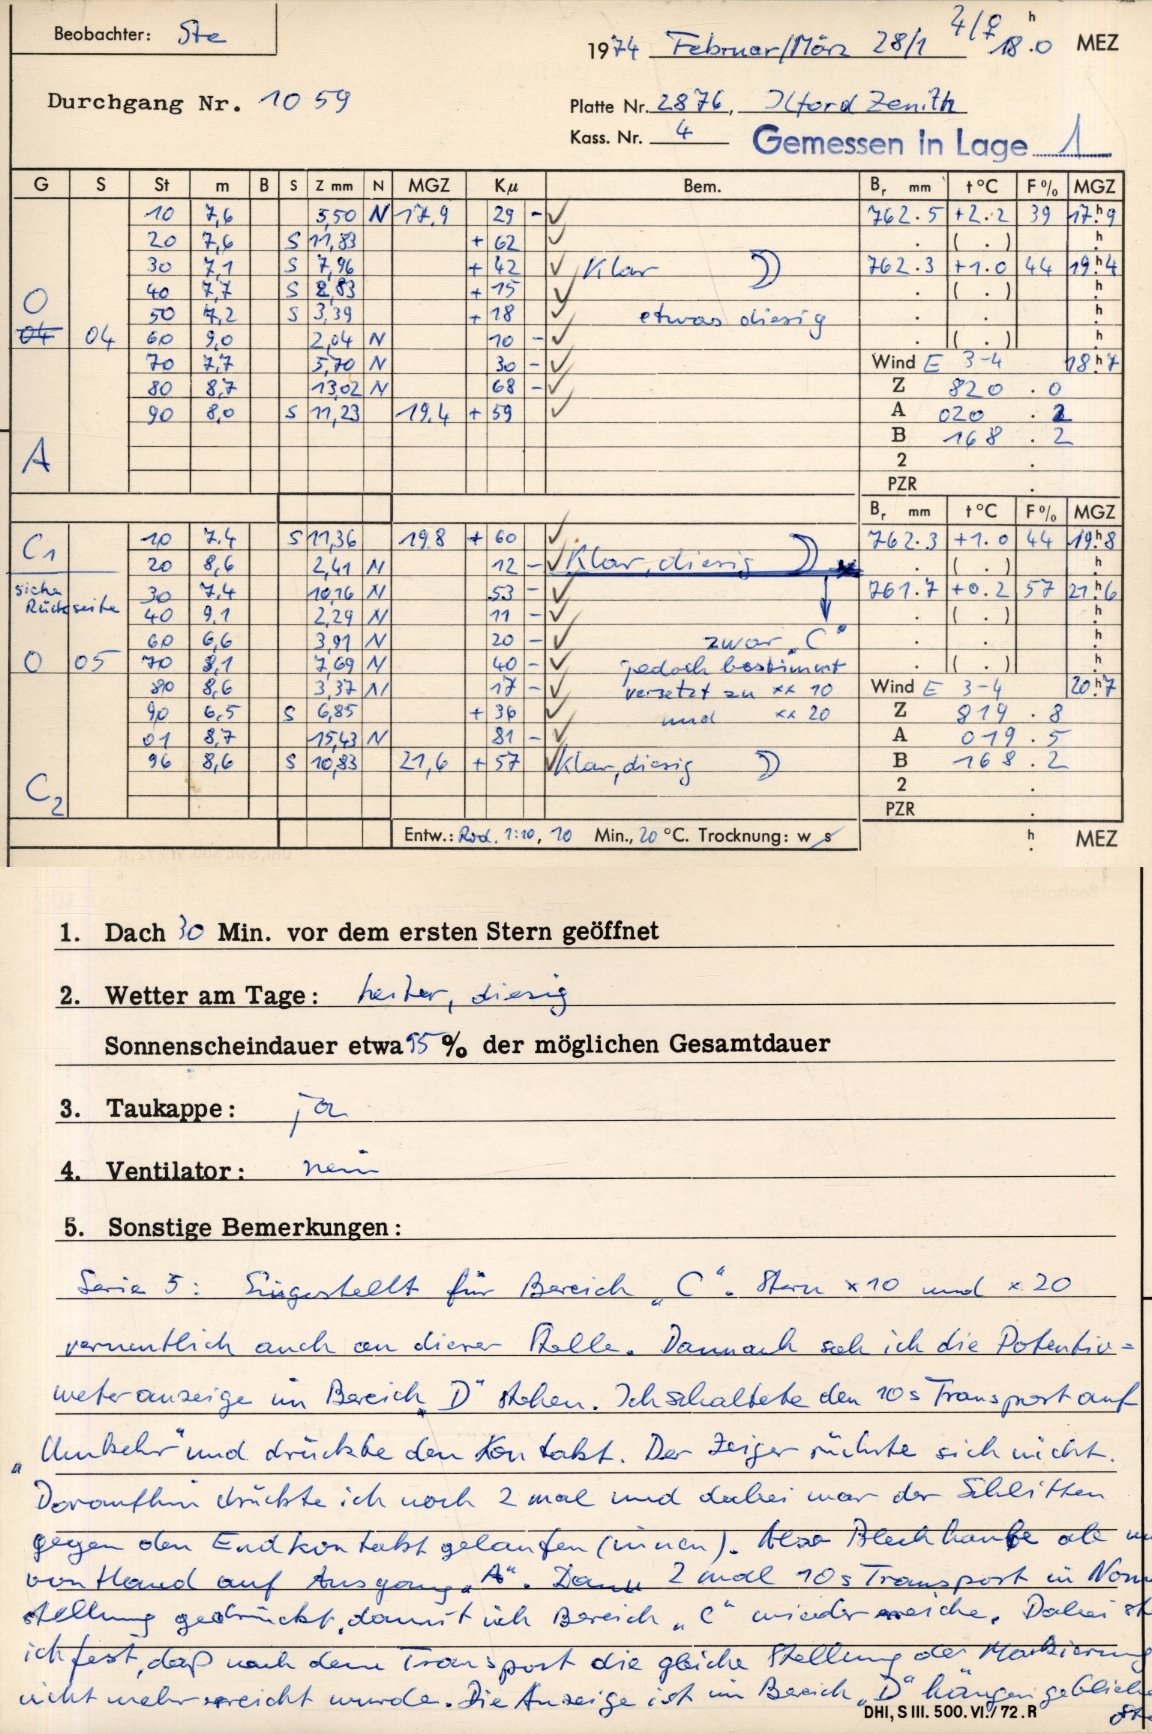 Beobachter: Ste
1974 Februar/März 28/1 4/5 18.0 h MEZ
Durchgang Nr. 1059
Platte Nr. 2876, Ilford Zenith
Kass. Nr. 4 Gemessen in Lage 1
G S St m B S Z mm N MGZ Kμ Bem. Br mm t °C F % MGZ
10 7,6 5,50 N 17,9 29 - ✓ 762.5 +2.2 39 17h9
20 7,6 S 11,83 + 62 ✓ . ( . ) h
30 7,1 S 7,96 + 42 ✓ Klar 762.3 +1.0 44 19h4
O 40 7,7 S 2,83 + 15 ✓ . ( . ) h
50 7,2 S 3,39 + 18 ✓ etwas diesig . . h
04 04 60 9,0 2,04 N 10 - ✓ . ( . ) h
70 7,7 5,70 N 30 - ✓ Wind E 3-4 18h7
80 8,7 13,02 N 68 - ✓ Z 820 . 0
90 8,0 S 11,23 19,4 + 59 ✓ A 020 . 2
B 168 . 2
A 2 .
PZR .
Br mm t °C F % MGZ
C1 10 7.4 S 11,36 19.8 + 60 ✓ 762.3 +1.0 44 19h8
20 8,6 2,41 N 12 - ✓ Klar, diesig . ( . ) h
siehe Rückseite 30 7.4 10,16 N 53 - ✓ 761.7 +0.2 57 21h6
40 9.1 2,29 N 11 - ✓ . ( . ) h
60 6,6 3,91 N 20 - ✓ zwar „C“ . . h
O 05 70 8,1 7,69 N 40 - ✓ jedoch bestimmt . ( . ) h
80 8,6 3,37 N 17 - ✓ versetzt zu ** 10 Wind E 3-4 20h7
90 6,5 S 6,85 + 36 ✓ und ** 20 Z 819 . 8
01 8,7 15,43 N 81 - ✓ A 019 . 5
96 8,6 S 10,83 21,6 + 57 ✓ Klar, diesig B 168 . 2
C2 2 .
PZR .
Entw.: Rod. 1:10, 10 Min., 20 °C. Trocknung: w s h MEZ
1. Dach 30 Min. vor dem ersten Stern geöffnet
2. Wetter am Tage: heiter, diesig
Sonnenscheindauer etwa 95 % der möglichen Gesamtdauer
3. Taukappe: ja
4. Ventilator: nein
5. Sonstige Bemerkungen:
Serie 5: Eingestellt für Bereich „C“. Stern *10 und *20
vermutlich auch an dieser Stelle. Dannach sah ich die Potentio=
meteranzeige im Bereich „D“ stehen. Ich schaltete den 10s Transport auf
„Umkehr“ und drückte den Kontakt. Der Zeiger rührte sich nicht.
Daraufhin drückte ich noch 2 mal und dabei war der Schlitten
gegen den Endkontakt gelaufen (innen). Also Blechhaube ab
von Hand auf Ausgang „A“. Dann 2 mal 10s Transport in
stellung gedrückt, damit ich Bereich „C“ wieder erreiche. Dabei
ich fest, daß nach dem Transport die gleiche Stellung der Markierung
nicht mehr erreicht wurde. Die Anzeige ist im Bereich „D“ hängen
DHI, S III. 500. VI./ 72. R